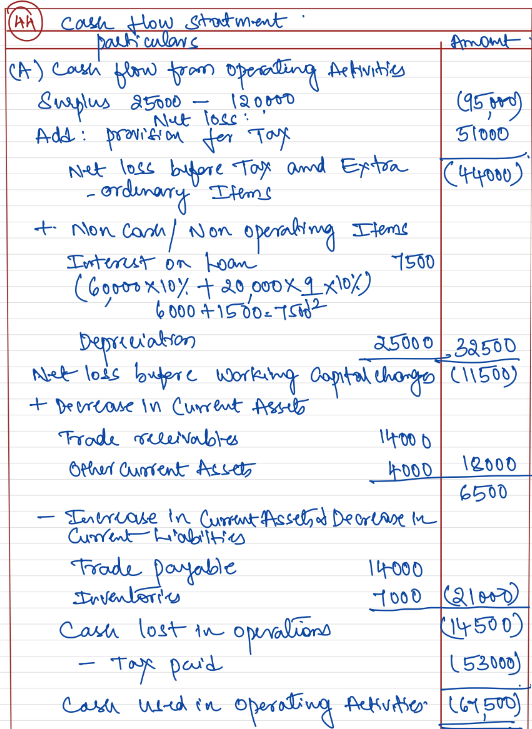 AA Cash flow Statment.
particulars Amount.
(A) Cash flow from Operating Activities
Surplus 25000 – 120,000 (95,000)
Net loss:
Add: provision for Tax 51000
Net loss before Tax and Extra (44000)
- ordinary Items
+ Non Cash/ Non operating Items
Interest on Loan 7500
(60,000×10% + 20,000×9/12×10%)
6000+1500=7500
Depreciation 25000 32500
Net loss before working Capital changes (11500)
+ Decrease in Current Assets
Trade receivables 14000
Other Current Assets 4000 18000
6500
– Increase in Current Assets & Decrease in
Current Liabilities
Trade payable 14000
Inventories 7000 (21000)
Cash lost in operations (14500)
– Tax paid (53000)
Cash used in operating Activities. (67,500)